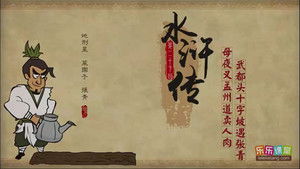 地刑星
菜园子
张青
水浒传
母夜叉孟州道卖人肉
武都头十字坡遇张青
乐乐课堂
leleketang.com